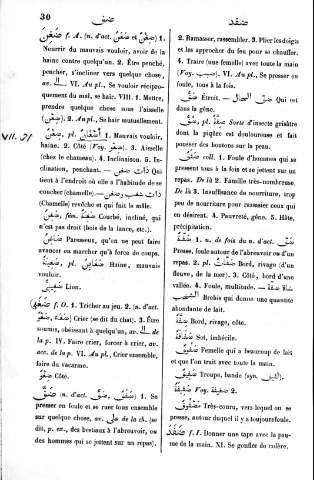 30
ضعن
ضفد
ضَغِنَ f. A. (n. d'act. ضِغْن et ضَغَن) 1.
Nourrir du mauvais vouloir, avoir de la
haine contre quelqu'un. 2. Être penché,
pencher, s'incliner vers quelque chose,
av. الى. VI. Au pl., Se vouloir récipro-
quement du mal, se haïr. VIII. 1. Mettre,
prendre quelque chose sous l'aisselle
(d'act. ب). 2. Au pl., Se haïr mutuellement.
ضِغْن pl. أَضْغَان 1. Mauvais vouloir,
haine. 2. Côté (Voy. ضِبْن). 3. Aisselle
(chez le chameau). 4. Inclinaison. 5. In-
clination, penchant. — ذات ضغن Qui
tient à l'endroit où elle a l'habitude de se
coucher (chamelle).
(Chamelle) revêche et qui fuit le mâle.
ضَغِن, fém. ضَغِنَة Courbé, incliné, qui
n'est pas droit (bois de la lance, etc.).
Paresseux, qu'on ne peut faire
avancer ou marcher qu'à force de coups.
ضَغِينَة pl. ضَغَائِن Haine, mauvais
vouloir.
Lion.
f. O. 1. Tricher au jeu. 2. (n. d'act.
Crier (se dit du chat). 3. Être
soumis, obéissant à quelqu'un, av. الى de
la p. IV. Faire crier, forcer à crier, av.
acc. de la p. VI. Au pl., Crier ensemble,
faire du vacarme.
Côté.
(n. d'act. 1. Se
presser en foule et se ruer tous ensemble
sur quelque chose, av. على de la ch. (se
dit, p. ex., des bestiaux à l'abreuvoir, ou
des hommes qui se jettent sur un repas).
2. Ramasser, rassembler. 3. Plier les doigts
et les approcher du feu pour se chauffer.
4. Traire (une femelle) avec toute la main
(Voy. ضب). VI. Au pl., Se presser en
foule, tous à la fois.
Étroit. — ضف الحال Qui est
dans la gêne.
pl. Sorte d'insecte grisâtre
dont la piqûre est douloureuse et fait
pousser des boutons sur la peau.
ضَفَف coll. 1. Foule d'hommes qui se
pressent tous à la fois et se jettent sur un
repas. De là 2. Famille très-nombreuse.
De là 3. Insuffisance de nourriture, trop
peu de nourriture pour rassasier ceux qui
en désirent. 4. Pauvreté, gêne. 5. Hâte,
précipitation.
ضَفَّة 1. n. de fois du n. d'act. ضف
Presse, foule autour de l'abreuvoir ou d'un
repas. 2. pl. ضفات Bord, rivage (d'un
fleuve, de la mer). 3. Côté, bord d'une
vallée. 4. Foule, multitude. — شاة ضفة
الشخب Brebis qui donne une quantité
abondante de lait.
ضِفَّة Bord, rivage, côte.
Sot, imbécile.
ضَفُوف Femelle qui a beaucoup de lait
et que l'on trait avec toute la main.
Troupe, bande (syn.
Voy. ضفة 2.
مَضْفُوف Très-couru, vers lequel on se
presse, autour duquel il y a toujours foule.
ضَفَدَ f. I. Donner une tape avec la pau-
me de la main. XI. Se gonfler de colère.